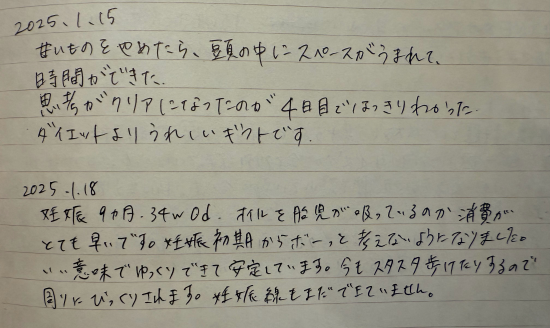 2025.1.15
甘いものをやめたら、頭の中にスペースがうまれて、
時間ができた.
思考がクリアになったのが4日目ではっきりわかった.
ダイエットよりうれしいギフトです.
2025.1.18
妊娠9ヵ月.34w0d.オイルを胎児が吸っているのか消費が
とても早いです。妊娠初期からボーっと考えないようになりました。
いい意味でゆっくりできて安定しています。今もスタスタ歩けたりするので
周りにびっくりされます。妊娠線もまだできていません。